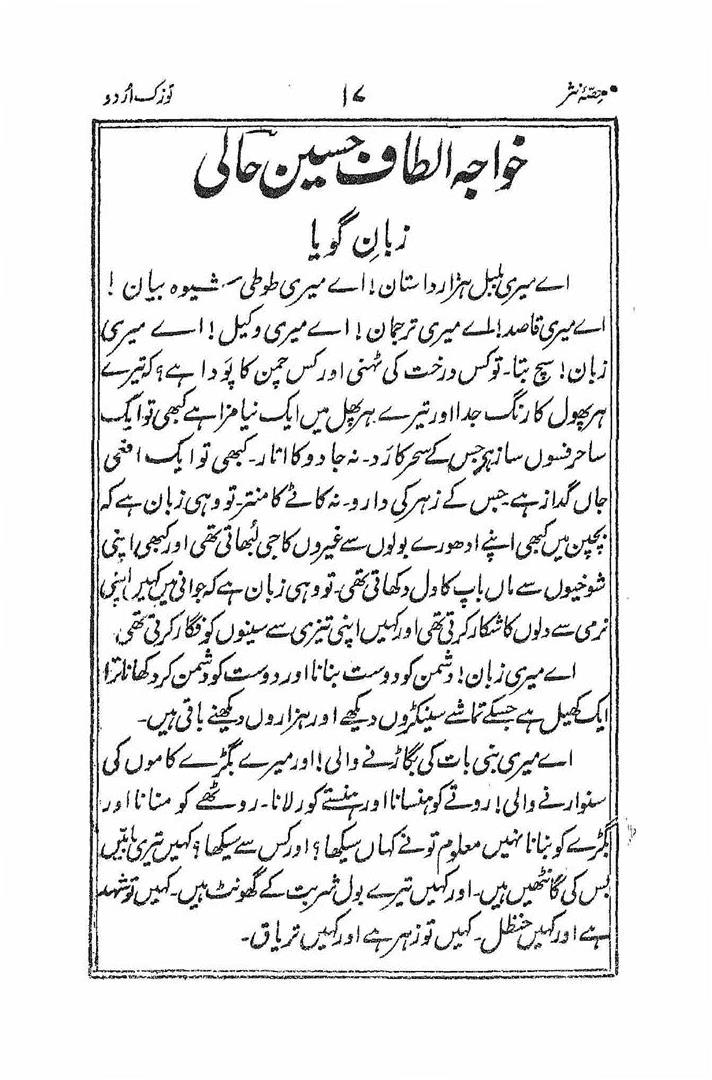 حصّۂ نثر ۱۷ توزک اُردو
خواجہ الطاف حسین حالی
زبانِ گویا
اے میری بلبل ہزار داستان! اے میری طوطی شیوہ بیان!
اے میری قاصد! اے میری ترجمان! اے میری وکیل! اے میری
زبان! سچ بتا۔ تو کس درخت کی ٹہنی اور کس چمن کا پَودا ہے؟ کہ تیرے
ہر پھول کا رنگ جدا اور تیرے ہر پھل میں ایک نیا مزا ہے کبھی تو ایک
ساحر فسوں ساز ہے جس کے سحر کا رَد۔ نہ جادو کا اتار۔ کبھی تو ایک افعی
جاں گداز ہے۔ جس کے زہر کی دارو۔ نہ کاٹے کا منتر۔ تو وہی زبان ہے کہ
بچپن میں کبھی اپنے ادھورے بولوں سے غیروں کا جی لُبھاتی تھی اور کبھی اپنی
شوخیوں سے ماں باپ کا دل دکھاتی تھی۔ تو وہی زبان ہے کہ جوانی میں کہیں اپنی
نرمی سے دلوں کا شکار کرتی تھی اور کہیں اپنی تیزی سے سینوں کو فگار کرتی تھی
اے میری زبان! دشمن کو دوست بنانا اور دوست کو دشمن کر دکھانا ترا
ایک کھیل ہے جسکے تماشے سینکڑوں دیکھے اور ہزاروں دیکھنے باقی ہیں۔
اے میری بنی بات کی بگاڑنے والی! اور میرے بگڑے کاموں کی
سنوارنے والی! روتے کو ہنسانا اور ہنستے کو رلانا۔ روٹھے کو منانا اور
بگڑے کو بنانا نہیں معلوم تو نے کہاں سیکھا؟ اور کس سے سیکھا؟ کہیں تیری باتیں
بس کی گانٹھیں ہیں۔ اور کہیں تیرے بول شربت کے گھونٹ ہیں۔ کہیں تو شہد
ہے اور کہیں حنظل۔ کہیں تو زہر ہے اور کہیں تریاق۔